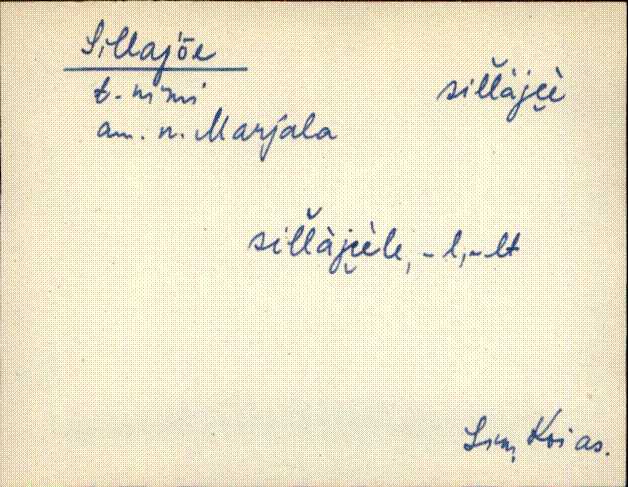 Sillajõe
t. nimi
am. n. Marjala
sil̆l̀àjẹè
sil̆l̀àjẹèle, -l, -lt
Krj as.